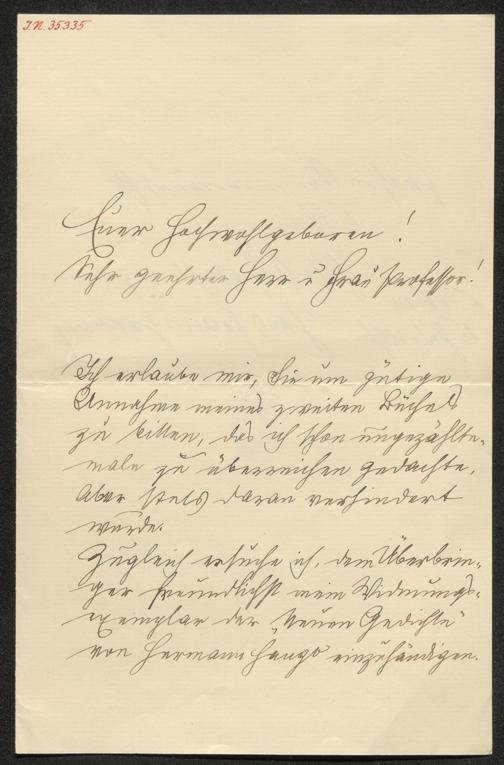 I.N. 35335
Euer Hochwohlgeboren!
Sehr geehrter Herr u Frau Professor!
Ich erlaube mir, Sie um gütige
Annahme meines zweiten Büchels
zu bitten, das ich schon ungezählte-
male zu überreichen gedachte,
aber stets daran verhindert
wurde.
Zugleich ersuche ich, dem Überbrin-
ger freundlichst mein Widmungs-
exemplar der "Neuen Gedichte"
von Hermann Hango einzuhändigen.